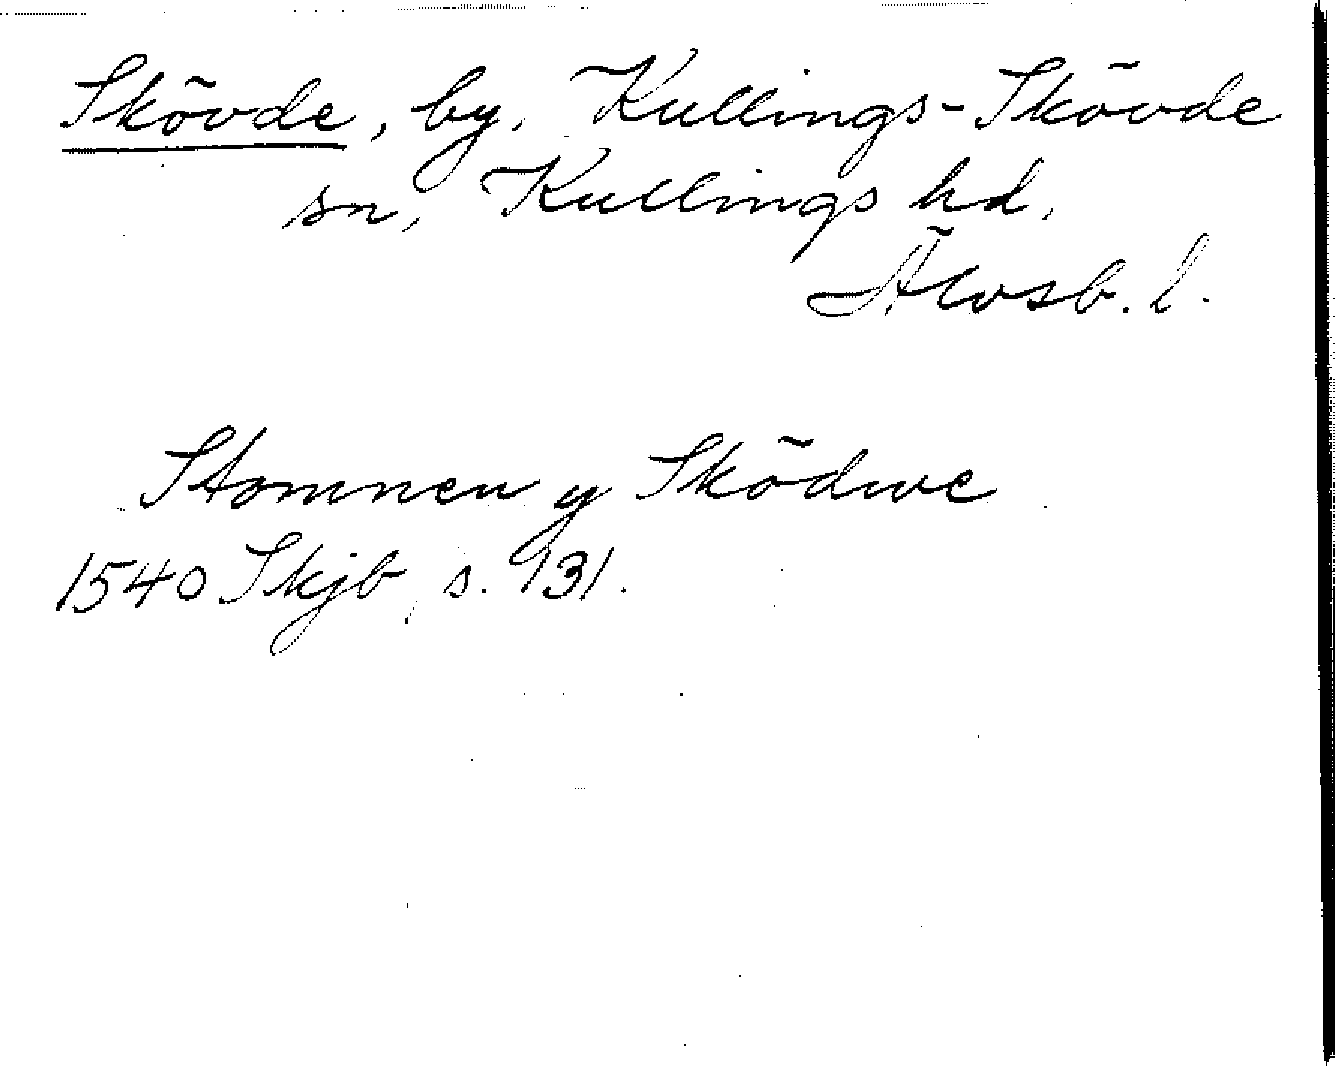 Skövde, by, Kullings-Skövde
sn, Kullings hd,
Älvsb. l.
Stomnen y Sködwe
1540 Skjb, s. 131.